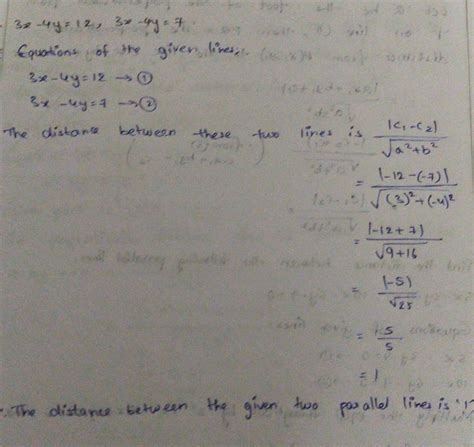 3x-4y=12, 3x-4y=7.
Equations of the given lines,
3x-4y=12 → ①
3x-4y=7 → ②
The distance between these two lines is |c₁-c₂| / √a²+b²
= |-12-(-7)| / √(3)²+(-4)²
= |-12+7| / √9+16
= |-5| / √25
= 5/5
= 1
The distance between the given two parallel lines is '1'